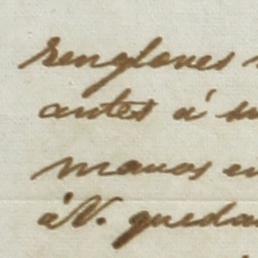 renglones
antes á su
manos en
á V. queda